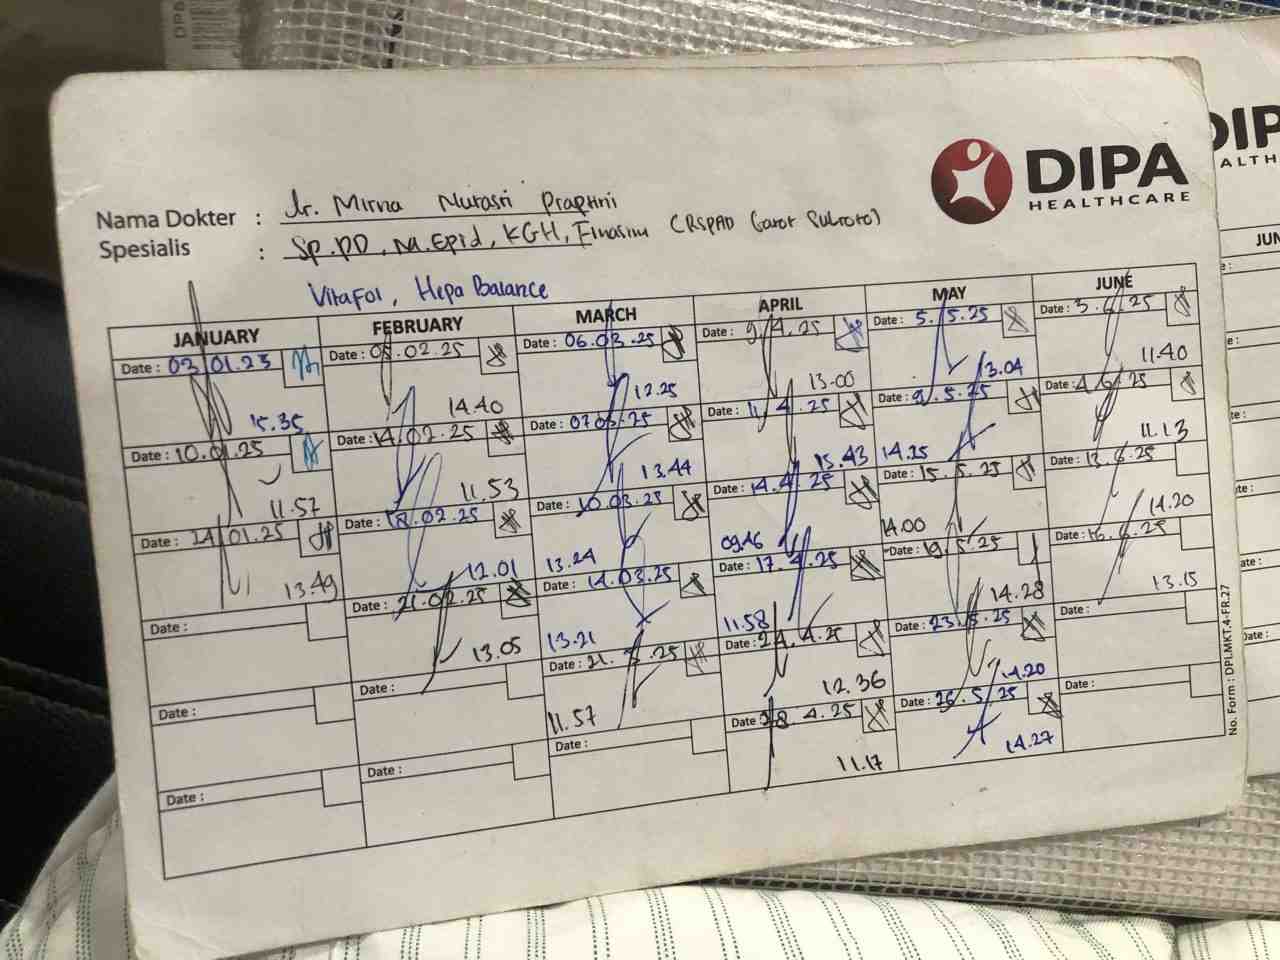 DIPA
HEALTHCARE
Nama Dokter : dr. Mirna Nurasri Praptini
Spesialis : Sp.PD, M.Epid, KGH, Finasim (RSPAD Gatot Subroto)
VitaFol, Hepa Balance
JANUARY FEBRUARY MARCH APRIL MAY JUNE
Date : 03.01.25 Date : 05.02.25 Date : 06.03.25 Date : 9.4.25 Date : 5.5.25 Date : 3.6.25
15.35 14.40 12.25 13.00 13.04 11.40
Date : 10.01.25 Date : 14.02.25 Date : 07.03.25 Date : 11.4.25 Date : 9.5.25 Date : 4.6.25
11.57 11.53 13.44 13.43 14.25 11.13
Date : 14.01.25 Date : 18.02.25 Date : 10.03.25 Date : 14.4.25 Date : 15.5.25 Date : 13.6.25
13.49 12.01 13.24 09.46 14.00 14.20
Date : Date : 21.02.25 Date : 14.03.25 Date : 17.4.25 Date : 19.5.25 Date : 16.6.25
13.05 13.21 11.58 14.28 13.15
Date : Date : Date : 21.3.25 Date : 24.4.25 Date : 23.5.25 Date :
11.57 12.36 14.20
Date : Date : Date : Date : 28.4.25 Date : 26.5.25 Date :
11.17 14.27
No. Form : DPLMKT.4-FR.27